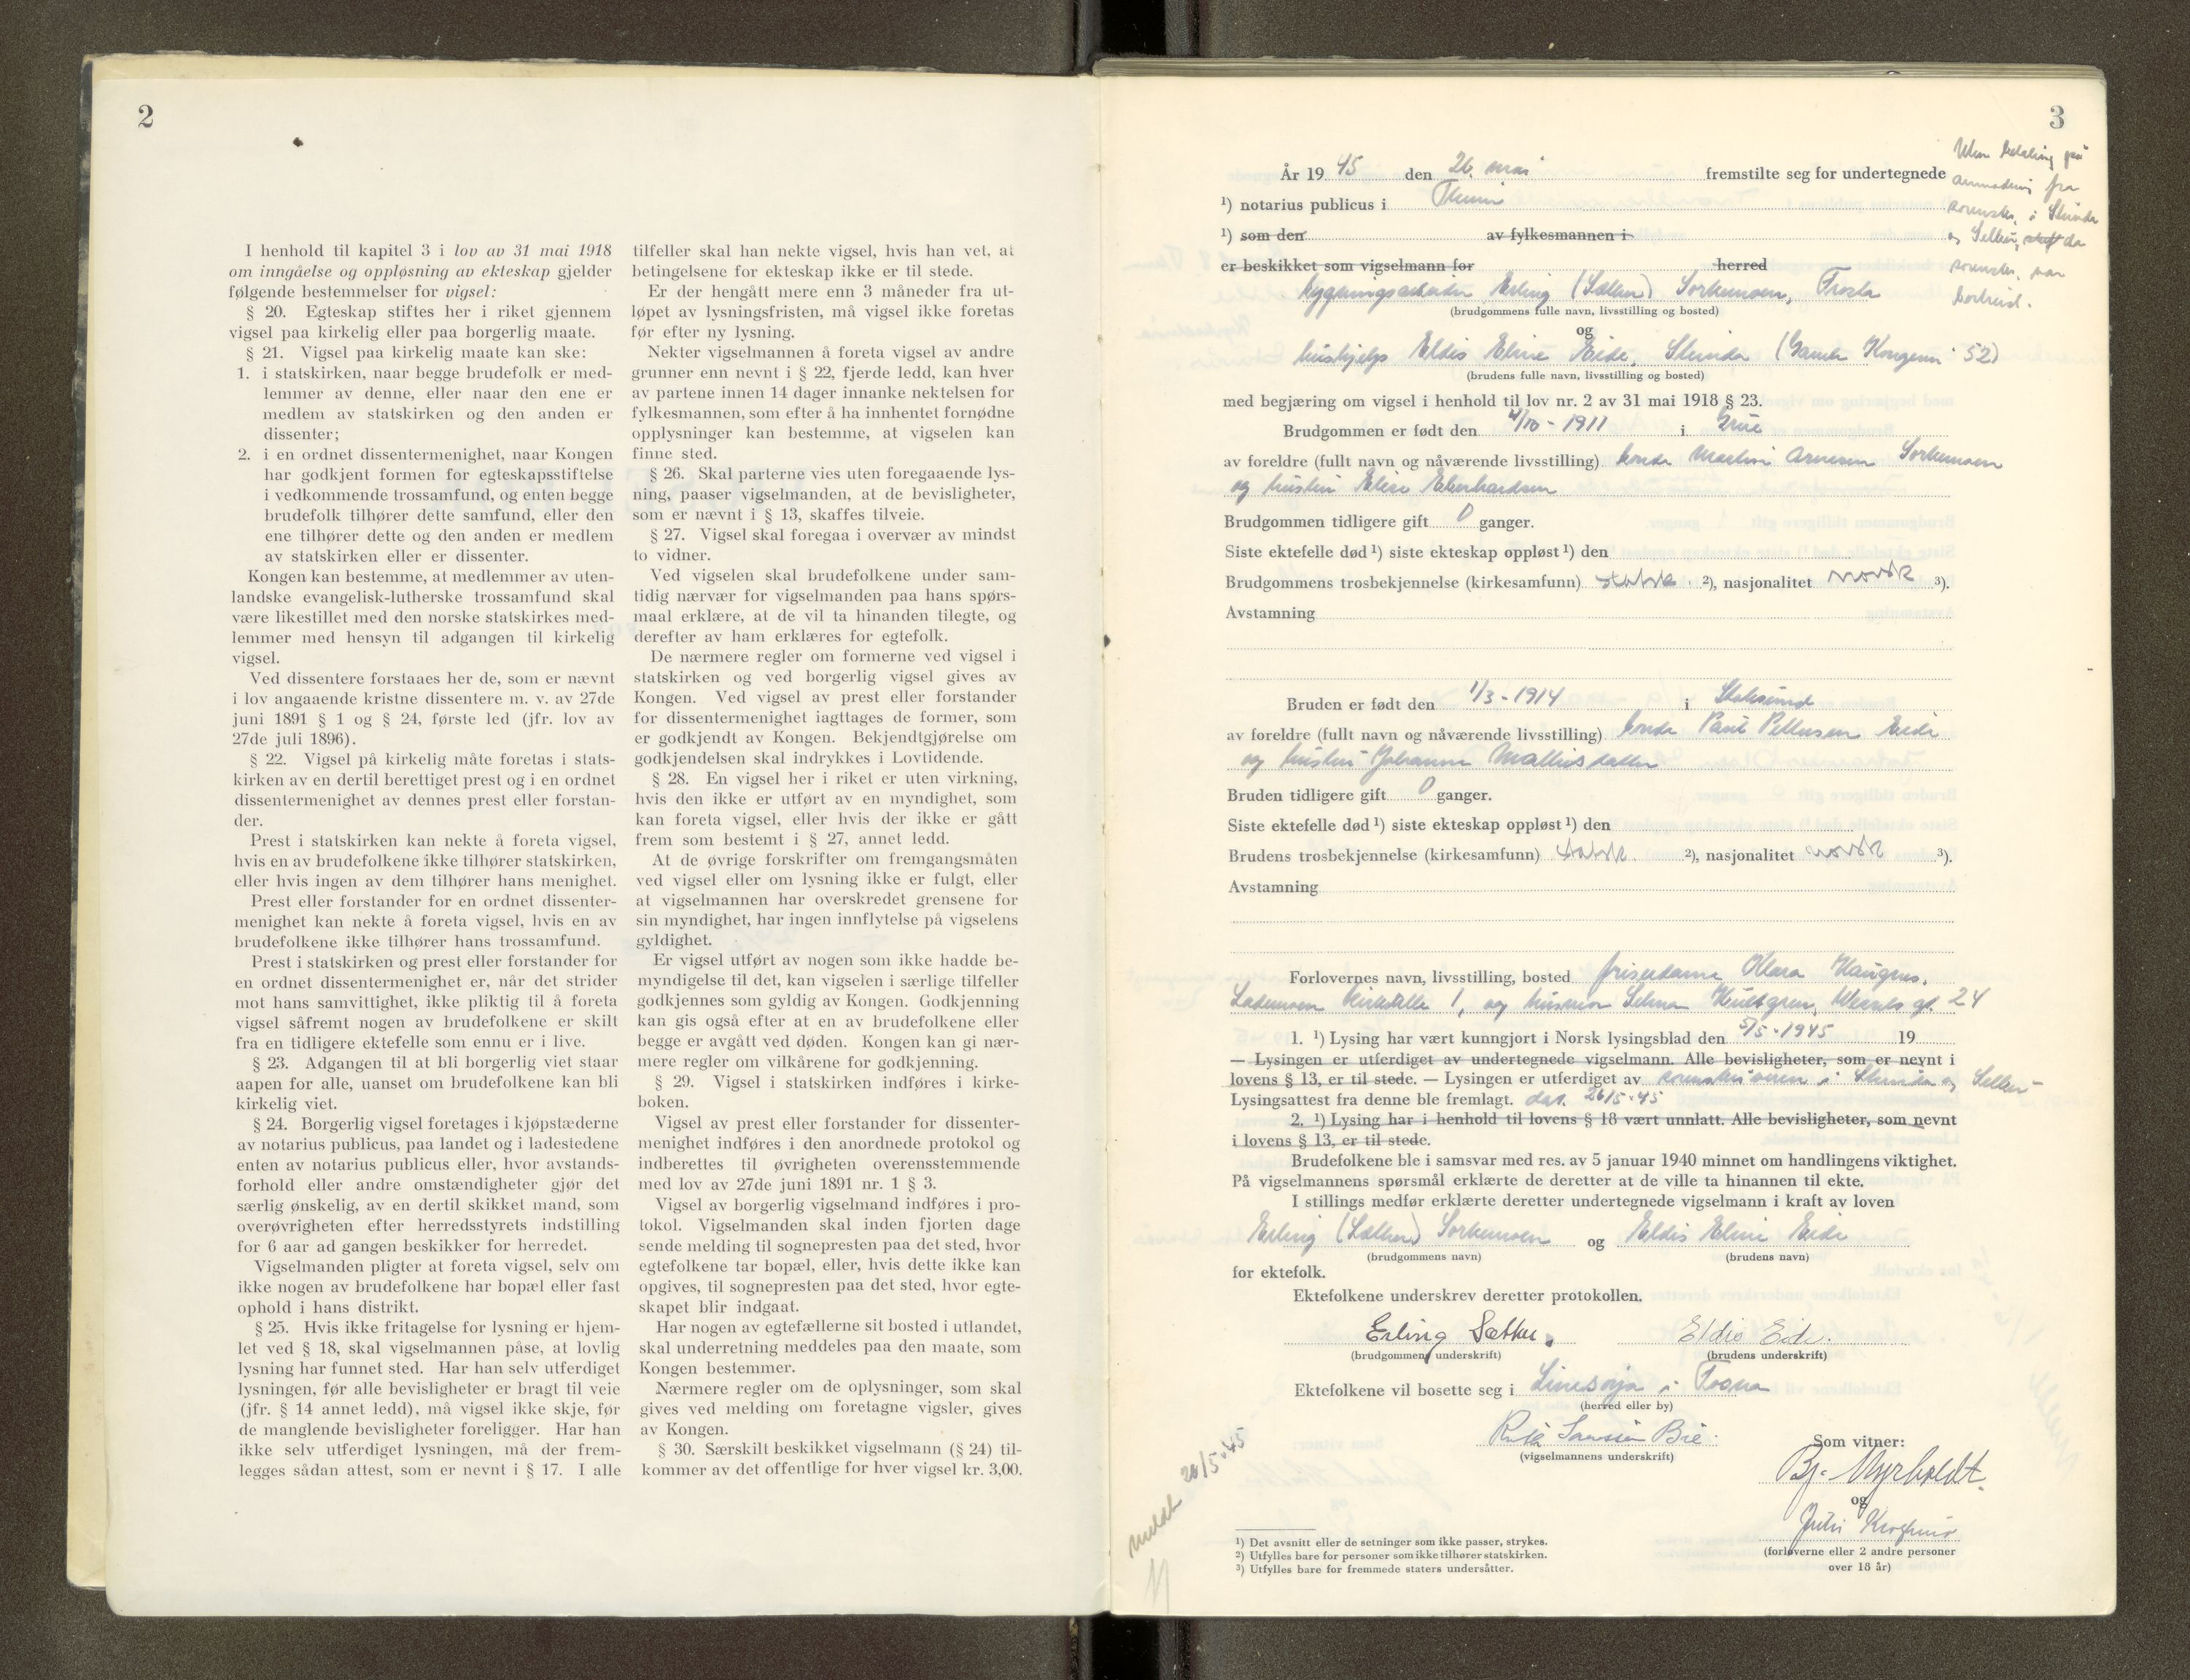 2
I henhold til kapitel 3 i lov av 31 mai 1918
om inngåelse og oppløsning av ekteskap gjelder
følgende bestemmelser for vigsel:
§ 20. Egteskap stiftes her i riket gjennem
vigsel paa kirkelig eller paa borgerlig maate.
§ 21. Vigsel paa kirkelig maate kan ske:
1. i statskirken, naar begge brudefolk er med-
lemmer av denne, eller naar den ene er
medlem av statskirken og den anden er
dissenter;
2. i en ordnet dissentermenighet, naar Kongen
har godkjent formen for egteskapsstiftelse
i vedkommende trossamfund, og enten begge
brudefolk tilhører dette samfund, eller den
ene tilhører dette og den anden er medlem
av statskirken eller er dissenter.
Kongen kan bestemme, at medlemmer av uten-
landske evangelisk-lutherske trossamfund skal
være likestillet med den norske statskirkes med-
lemmer med hensyn til adgangen til kirkelig
vigsel.
Ved dissentere forstaaes her de, som er nævnt
i lov angaaende kristne dissentere m. v. av 27de
juni 1891 § 1 og § 24, første led (jfr. lov av
27de juli 1896).
§ 22. Vigsel på kirkelig måte foretas i stats-
kirken av en dertil berettiget prest og i en ordnet
dissentermenighet av dennes prest eller forstan-
der.
Prest i statskirken kan nekte å foreta vigsel,
hvis en av brudefolkene ikke tilhører statskirken,
eller hvis ingen av dem tilhører hans menighet.
Prest eller forstander for en ordnet dissenter-
menighet kan nekte å foreta vigsel, hvis en av
brudefolkene ikke tilhører hans trossamfund.
Prest i statskirken og prest eller forstander for
en ordnet dissentermenighet er, når det strider
mot hans samvittighet, ikke pliktig til å foreta
vigsel såfremt nogen av brudefolkene er skilt
fra en tidligere ektefelle som ennu er i live.
§ 23. Adgangen til at bli borgerlig viet staar
aapen for alle, uanset om brudefolkene kan bli
kirkelig viet.
§ 24. Borgerlig vigsel foretages i kjøpstæderne
av notarius publicus, paa landet og i ladestedene
enten av notarius publicus eller, hvor avstands-
forhold eller andre omstændigheter gjør det
særlig ønskelig, av en dertil skikket mand, som
overøvrigheten efter herredsstyrets indstilling
for 6 aar ad gangen beskikker for herredet.
Vigselmanden pligter at foreta vigsel, selv om
ikke nogen av brudefolkene har bopæl eller fast
ophold i hans distrikt.
§ 25. Hvis ikke fritagelse for lysning er hjem-
let ved § 18, skal vigselmannen påse, at lovlig
lysning har funnet sted. Har han selv utferdiget
lysningen, før alle bevisligheter er bragt til veie
(jfr. § 14 annet ledd), må vigsel ikke skje, før
de manglende bevisligheter foreligger. Har han
ikke selv utferdiget lysningen, må der frem-
legges sådan attest, som er nevnt i § 17. I alle
tilfeller skal han nekte vigsel, hvis han vet, at
betingelsene for ekteskap ikke er til stede.
Er der hengått mere enn 3 måneder fra ut-
løpet av lysningsfristen, må vigsel ikke foretas
før efter ny lysning.
Nekter vigselmannen å foreta vigsel av andre
grunner enn nevnt i § 22, fjerde ledd, kan hver
av partene innen 14 dager innanke nektelsen for
fylkesmannen, som efter å ha innhentet fornødne
opplysninger kan bestemme, at vigselen kan
finne sted.
§ 26. Skal parterne vies uten foregaaende lys-
ning, paaser vigselmanden, at de bevisligheter,
som er nævnt i § 13, skaffes tilveie.
§ 27. Vigsel skal foregaa i overvær av mindst
to vidner.
Ved vigselen skal brudefolkene under sam-
tidig nærvær for vigselmanden paa hans spørs-
maal erklære, at de vil ta hinanden tilegte, og
derefter av ham erklæres for egtefolk.
De nærmere regler om formerne ved vigsel i
statskirken og ved borgerlig vigsel gives av
Kongen. Ved vigsel av prest eller forstander
for dissentermenighet iagttages de former, som
er godkjendt av Kongen. Bekjendtgjørelse om
godkjendelsen skal indrykkes i Lovtidende.
§ 28. En vigsel her i riket er uten virkning,
hvis den ikke er utført av en myndighet, som
kan foreta vigsel, eller hvis der ikke er gått
frem som bestemt i § 27, annet ledd.
At de øvrige forskrifter om fremgangsmåten
ved vigsel eller om lysning ikke er fulgt, eller
at vigselmannen har overskredet grensene for
sin myndighet, har ingen innflytelse på vigselens
gyldighet.
Er vigsel utført av nogen som ikke hadde be-
myndigelse til det, kan vigselen i særlige tilfeller
godkjennes som gyldig av Kongen. Godkjenning
kan gis også efter at en av brudefolkene eller
begge er avgått ved døden. Kongen kan gi nær-
mere regler om vilkårene for godkjenning.
§ 29. Vigsel i statskirken indføres i kirke-
boken.
Vigsel av prest eller forstander for dissenter-
menighet indføres i den anordnede protokol og
indberettes til øvrigheten overensstemmende
med lov av 27de juni 1891 nr. 1 § 3.
Vigsel av borgerlig vigselmand indføres i pro-
tokol. Vigselmanden skal inden fjorten dage
sende melding til sognepresten paa det sted, hvor
egtefolkene tar bopæl, eller, hvis dette ikke kan
opgives, til sognepresten paa det sted, hvor egte-
skapet blir indgaat.
Har nogen av egtefællerne sit bosted i utlandet,
skal underretning meddeles paa den maate, som
Kongen bestemmer.
Nærmere regler om de oplysninger, som skal
gives ved melding om foretagne vigsler, gives
av Kongen.
§ 30. Særskilt beskikket vigselmann (§ 24) til-
kommer av det offentlige for hver vigsel kr. 3,00.
3
Uten betaling på
anmodning fra
sorenskr. i Strinda
og Selbu, da
sorenskr. var
bortreist.
År 1945 den 26. mai fremstilte seg for undertegnede
1) notarius publicus i Thrm
1) som den av fylkesmannen i
er beskikket som vigselmann for herred
bygningsarbeider Erling (Sæther) Sorkmoen, Frosta
(brudgommens fulle navn, livsstilling og bosted)
og
hushjelp Eldis Eline Eide, Strinda (Gamle Kongevei 52)
(brudens fulle navn, livsstilling og bosted)
med begjæring om vigsel i henhold til lov nr. 2 av 31 mai 1918 § 23.
Brudgommen er født den 4/10 - 1911 i Grue
av foreldre (fullt navn og nåværende livsstilling) bonde Martin Arnesen Sorkmoen
og hustru Elise Eberhardsen
Brudgommen tidligere gift 0 ganger.
Siste ektefelle død 1) siste ekteskap oppløst 1) den
Brudgommens trosbekjennelse (kirkesamfunn) statsk. 2), nasjonalitet norsk 3).
Avstamning
Bruden er født den 1/3 - 1914 i Stoksund
av foreldre (fullt navn og nåværende livsstilling) bonde Paul Pettersen Eide
og hustru Johanna Mathisdatter
Bruden tidligere gift 0 ganger.
Siste ektefelle død 1) siste ekteskap oppløst 1) den
Brudens trosbekjennelse (kirkesamfunn) statsk. 2), nasjonalitet norsk 3).
Avstamning
Forlovernes navn, livsstilling, bosted friserdame Klara Haugnes,
Lademoen Kirkeallé 1, og husmor Selma Hultgren, Wessels gt. 24
1. 1) Lysing har vært kunngjort i Norsk lysingsblad den 5/5 - 1945 19
— Lysingen er utferdiget av undertegnede vigselmann. Alle bevisligheter, som er nevnt i
lovens § 13, er til stede. — Lysingen er utferdiget av sorenskriveren i Strinda og Selbu
Lysingsattest fra denne ble fremlagt. dat. 26/5-45
2. 1) Lysing har i henhold til lovens § 18 vært unnlatt. Alle bevisligheter, som nevnt
i lovens § 13, er til stede.
Brudefolkene ble i samsvar med res. av 5 januar 1940 minnet om handlingens viktighet.
På vigselmannens spørsmål erklærte de deretter at de ville ta hinannen til ekte.
I stillings medfør erklærte deretter undertegnede vigselmann i kraft av loven
Erling (Sæther) Sorkmoen og Eldis Eline Eide
(brudgommens navn) (brudens navn)
for ektefolk.
Ektefolkene underskrev deretter protokollen.
Erling Sæther. Eldis Eide.
(brudgommens underskrift) (brudens underskrift)
Ektefolkene vil bosette seg i Linesøya i
(herred eller by)
Bie
(vigselmannens underskrift)
Som vitner:
Bj. Myrholdt.
og
(forloverne eller 2 andre personer
over 18 år)
meldt 26/5-45
1) Det avsnitt eller de setninger som ikke passer, strykes.
2) Utfylles bare for personer som ikke tilhører statskirken.
3) Utfylles bare for fremmede staters undersåtter.